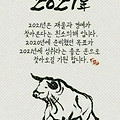 2021年
2021년은 재물과 명예가
찾아온다는 흰소의해 입니다.
2020년에 준비했던 목표가
2021년에 성취하는 좋은 운으로
찾아오길 기원 합니다.